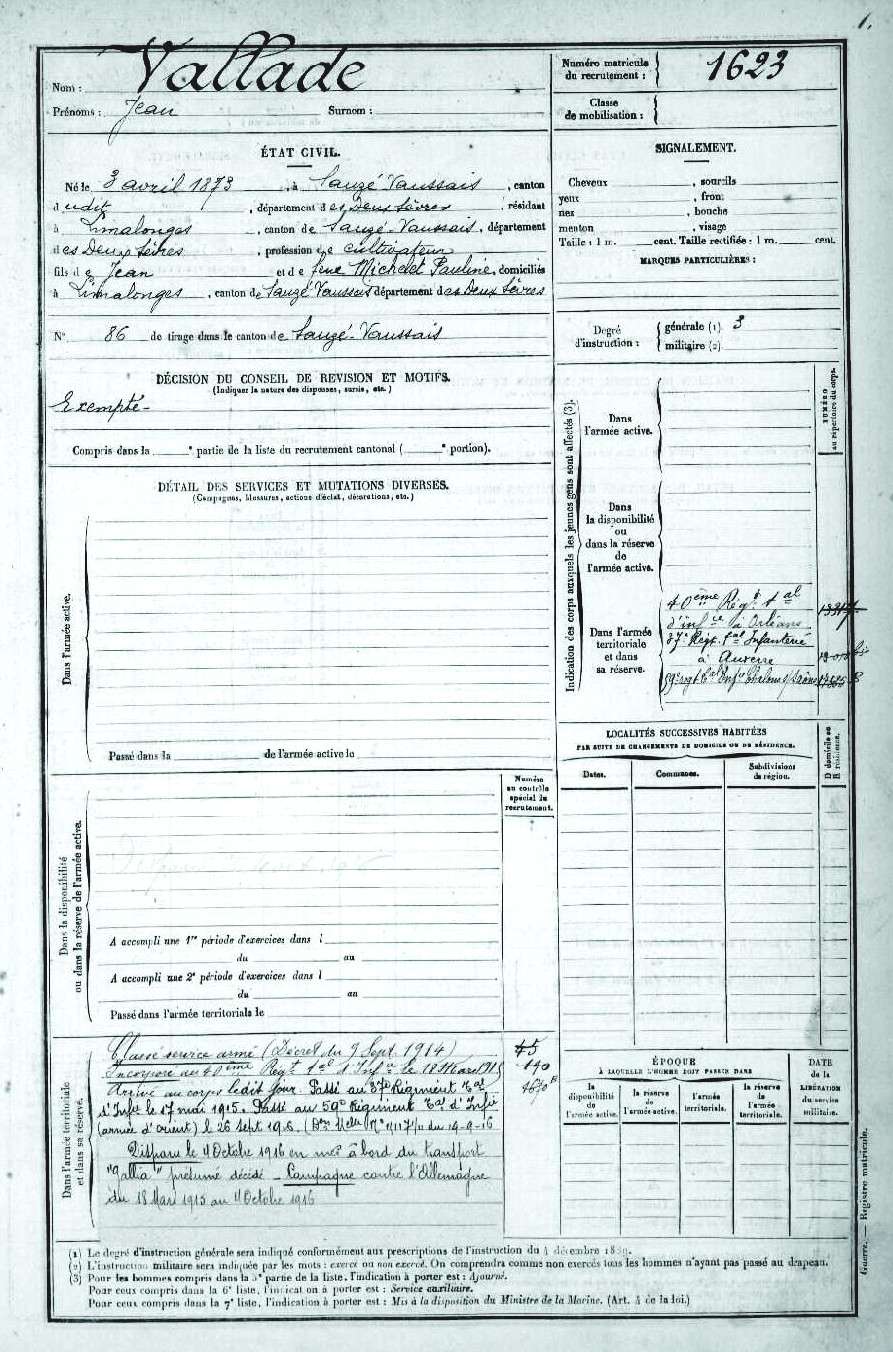 1.
Nom : Vallade
Prénoms : Jean Surnom :
Numéro matricule du recrutement : 1623
Classe de mobilisation :
ÉTAT CIVIL.
Né le 3 avril 1873, à Sauzé-Vaussais, canton
dudit, département des Deux Sèvres, résidant
à Limalonges, canton de Sauzé-Vaussais, département
des Deux Sèvres, profession de cultivateur
fils de Jean et de feue Michelet Pauline, domiciliés
à Limalonges, canton de Sauzé Vaussais département des Deux Sèvres
N° 86 de tirage dans le canton de Sauzé-Vaussais
SIGNALEMENT.
Cheveux , sourcils
yeux , front
nez , bouche
menton , visage
Taille : 1 m. cent. Taille rectifiée : 1 m. cent.
MARQUES PARTICULIÈRES :
Degré d'instruction : générale (1) 3
militaire (2)
DÉCISION DU CONSEIL DE REVISION ET MOTIFS.
(Indiquer la nature des dispenses, sursis, etc.)
Exempté-
Compris dans la e partie de la liste du recrutement cantonal ( e portion).
DÉTAIL DES SERVICES ET MUTATIONS DIVERSES.
(Campagnes, blessures, actions d'éclat, décorations, etc.)
Dans l'armée active.
Passé dans la de l'armée active le
Indication des corps auxquels les jeunes gens sont affectés (3).
NUMÉRO au répertoire du corps.
Dans l'armée active.
Dans la disponibilité ou dans la réserve de l'armée active.
Dans l'armée territoriale et dans sa réserve.
40ème Régt tal
d'infie à Orléans
37e Régt tal Infanterie
à Auxerre
59e regt tal Infie Chalons s/Saône
LOCALITÉS SUCCESSIVES HABITÉES
PAR SUITE DE CHANGEMENTS DE DOMICILE OU DE RÉSIDENCE.
Dates. Communes. Subdivisions de région. D domicile ou R résidence.
Numéro au contrôle spécial du recrutement.
Dans la disponibilité ou dans la réserve de l'armée active.
A accompli une 1re période d'exercices dans l
du au
A accompli une 2e période d'exercices dans l
du au
Passé dans l'armée territoriale le
Dans l'armée territoriale et dans sa réserve.
Classé service armé (Décret du 9 Sept. 1914) 45
Incorporé au 40ème Régt tal d'Infie le 18 Mars 1915 140
Arrivé au corps ledit jour. Passé au 37e Régiment tal
d'Infie le 17 mai 1915. Passé au 59e Régiment tal d'Infie
(armée d'orient) le 26 Sept 1916. du 14-9-16
Disparu le 4 Octobre 1916 en mer à bord du transport
"Gallia" présumé décédé - Campagne contre l'Allemagne
du 18 Mars 1915 au 4 Octobre 1916
ÉPOQUE
À LAQUELLE L'HOMME DOIT PASSER DANS
la disponibilité de l'armée active. la réserve de l'armée active. l'armée territoriale. la réserve de l'armée territoriale.
DATE de la LIBÉRATION du service militaire.
Guerre. — Registre matricule.
(1) Le degré d'instruction générale sera indiqué conformément aux prescriptions de l'instruction du 4 décembre 1889.
(2) L'instruction militaire sera indiquée par les mots : exercé ou non exercé. On comprendra comme non exercés tous les hommes n'ayant pas passé au drapeau.
(3) Pour les hommes compris dans la 5e partie de la liste, l'indication à porter est : Ajourné.
Pour ceux compris dans la 6e liste, l'indication à porter est : Service auxiliaire.
Pour ceux compris dans la 7e liste, l'indication à porter est : Mis à la disposition du Ministre de la Marine. (Art. 4 de la loi.)